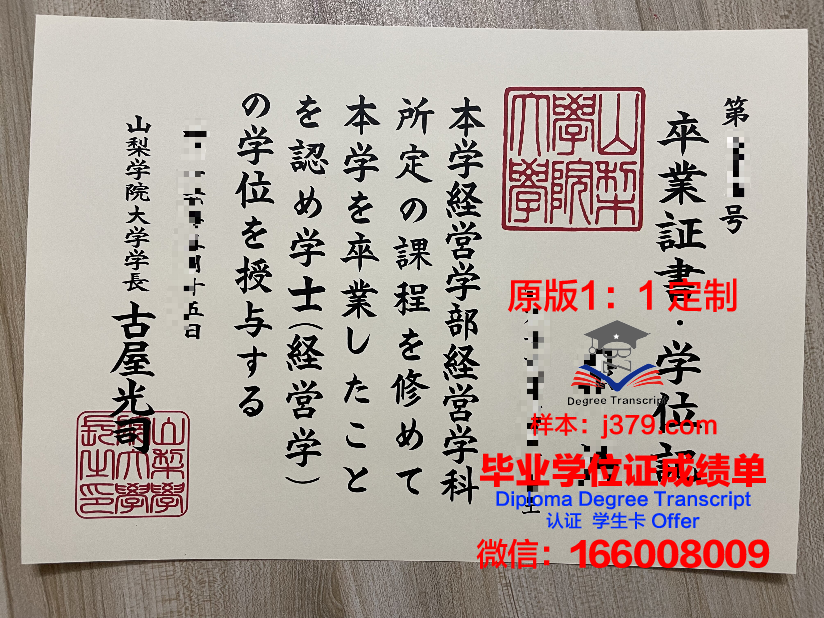 第
号
卒業証書・学位記
山梨
學院
大學
本学経営学部経営学科
所定の課程を修めて
本学を卒業したこと
を認め学士(経営学)
の学位を授与する
月十五日
山梨学院大学学長 古屋光司
山梨學
院大學
長之印
原版1：1 定制
Degree Transcript
样本：j379.com
毕业学位证成绩单
Diploma Degree Transcript
认证 学生卡 Offer
微信：166008009